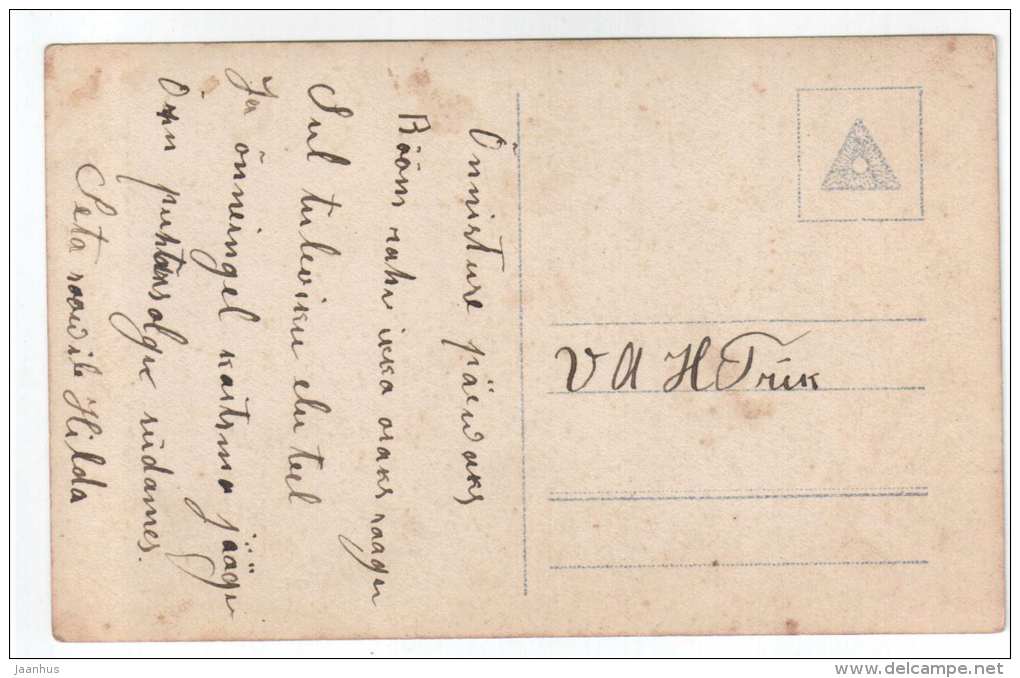 Õnnistuse päewaks
Rõõm rahu ikka osaks saagu
Sul tulewiku elu teel
Ja õnneingel kaitsma jäägu
Õnn puhtas olgu südames.
Seta soowib Hilda
V A H Trik
jaanhus
delcampe.net